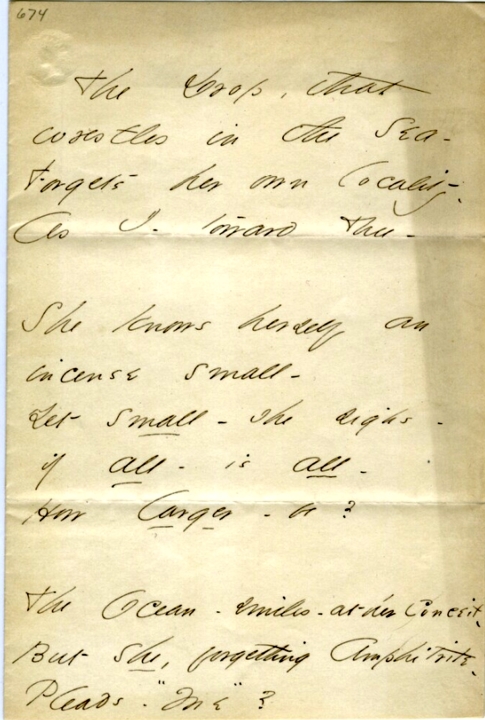 674
The Drop, that
wrestles in the Sea -
Forgets her own locality -
As I - toward Thee -
She knows herself an
incense small -
Yet small - she sighs -
if All - is All -
How larger - be?
The Ocean - smiles - at her Conceit -
But she, forgetting Amphitrite -
Pleads - "Me"?